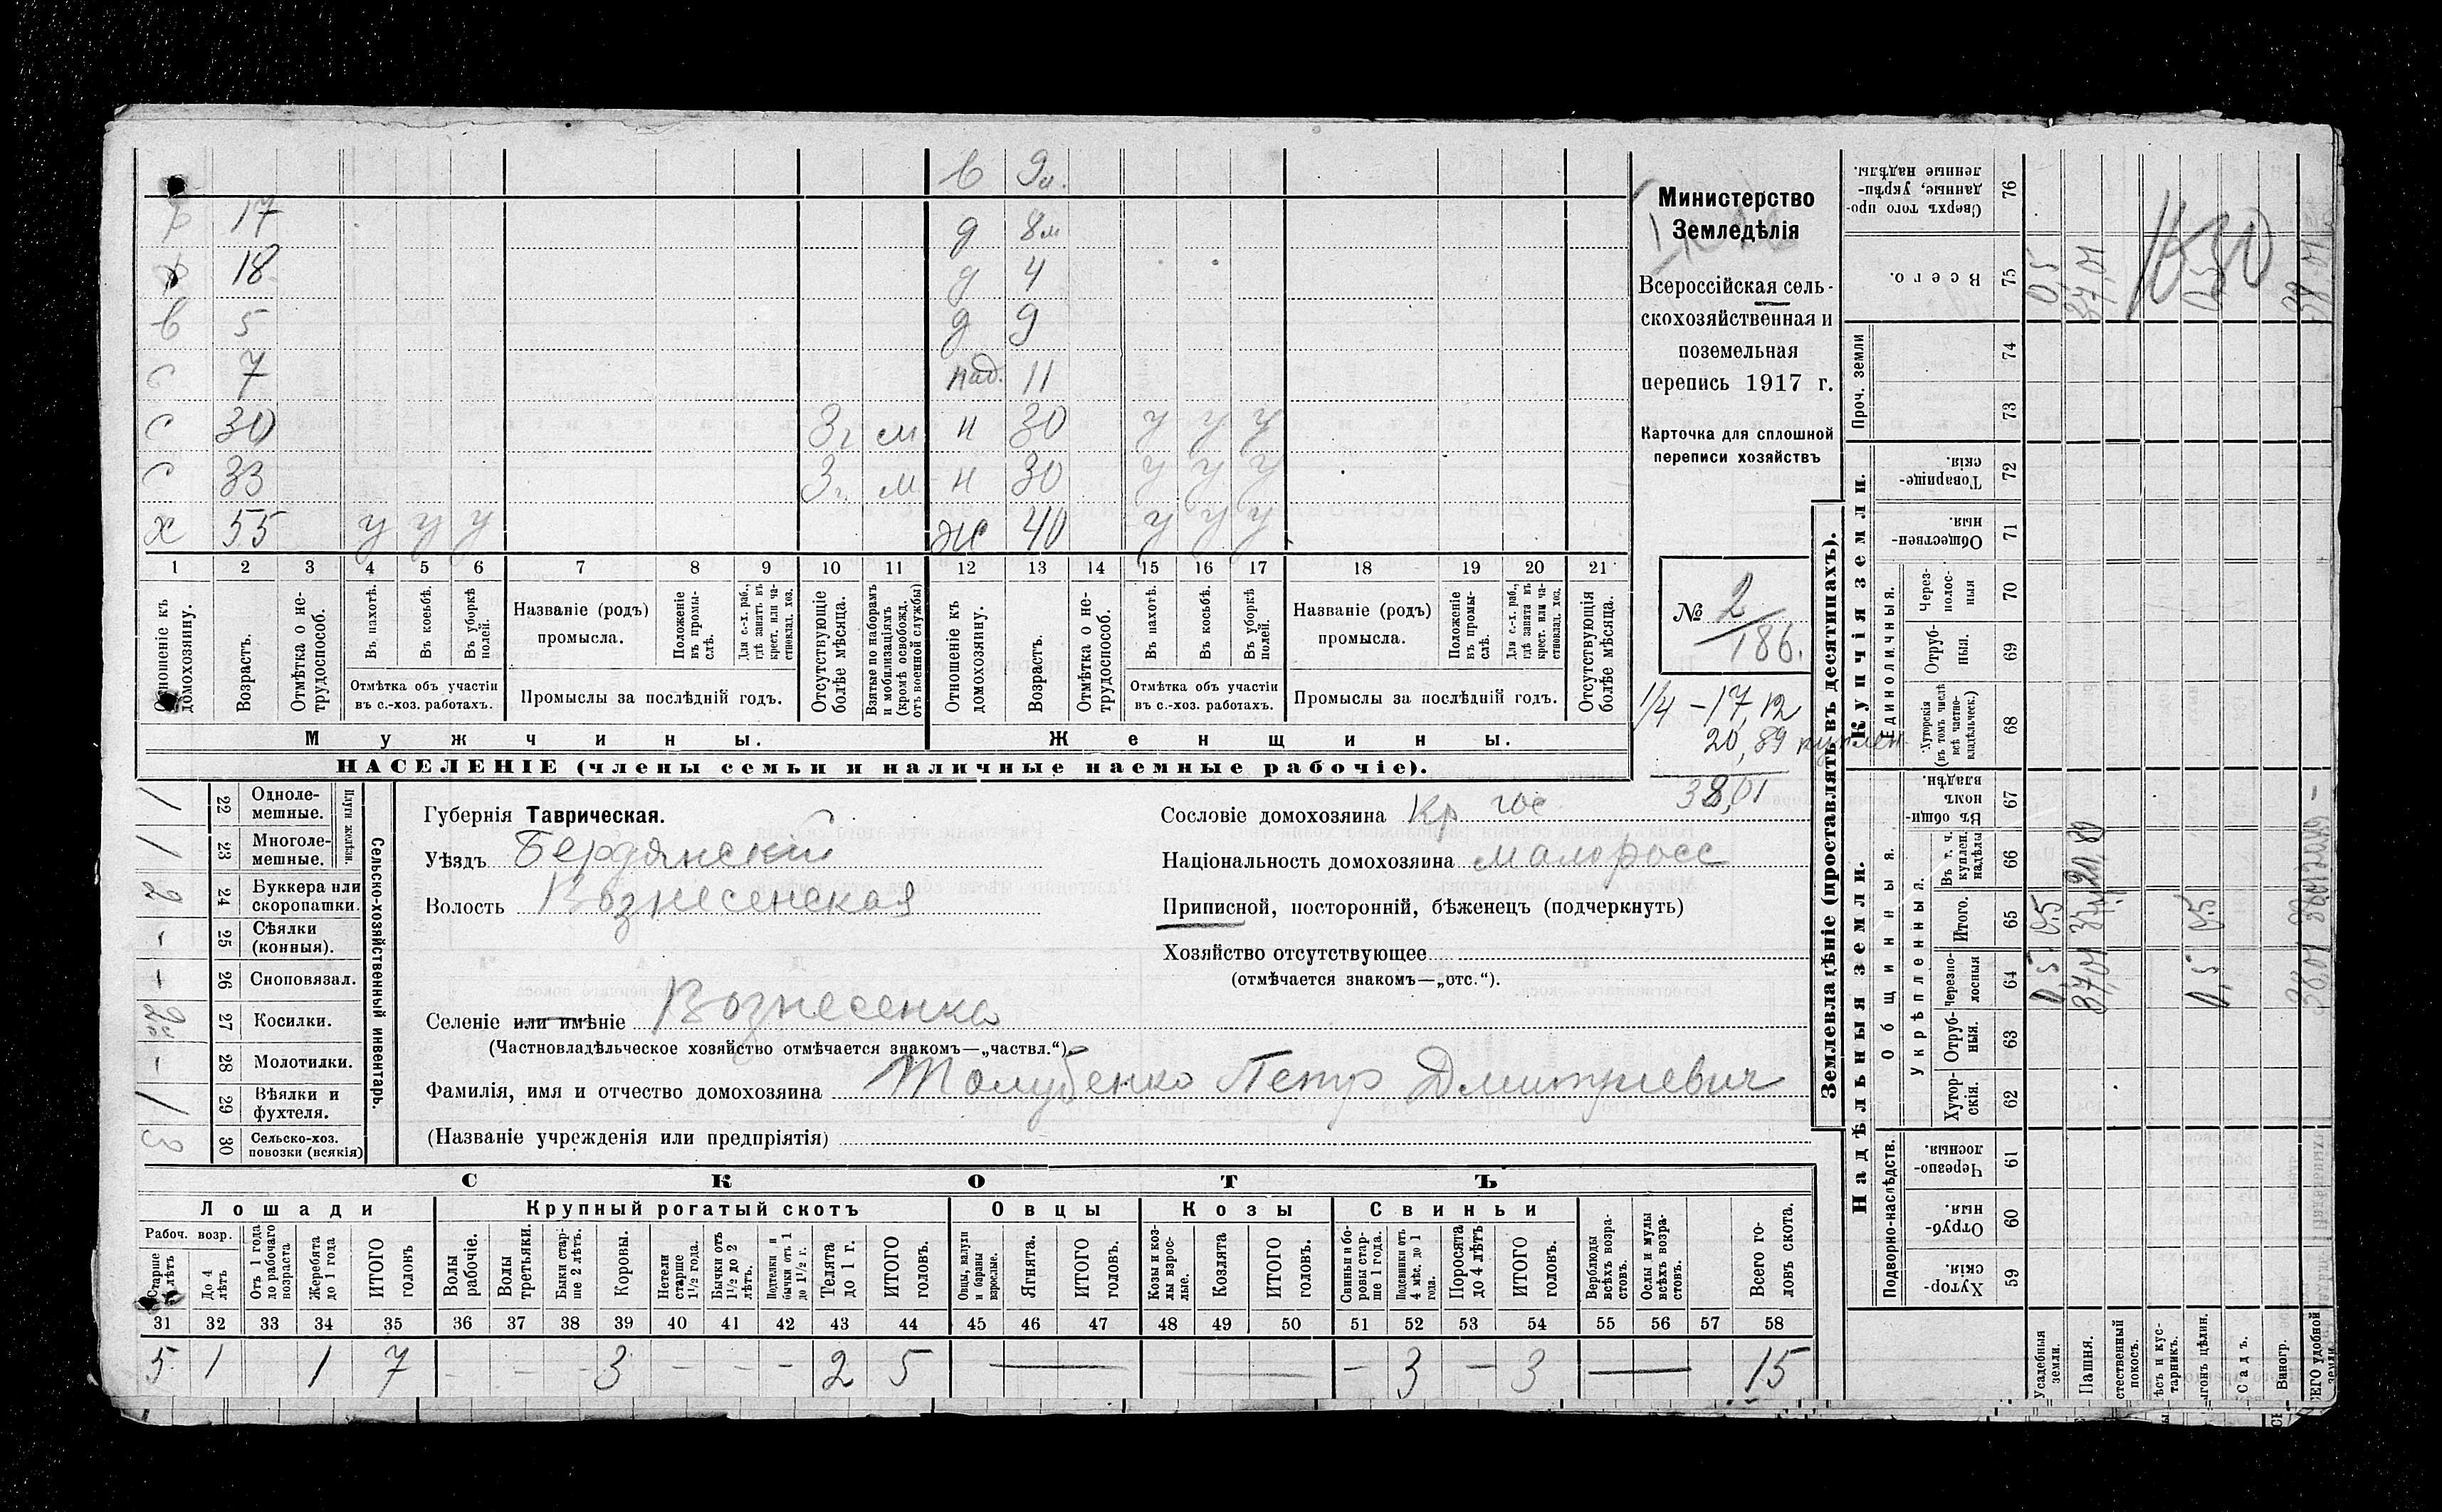 в 9м.
р 17 д 8м
р 18 д 4
в 5 д 9
с 7 пад. 11
с 30 3г м н 30 у у у
с 33 3г. м н 30 у у у
х 55 у у у ж 40 у у у
1 2 3 4 5 6 7 8 9 10 11 12 13 14 15 16 17 18 19 20 21
Отношеніе къ домохозяину.
Возрастъ.
Отмѣтка о нетрудоспособ.
Въ пахотѣ.
Въ косьбѣ.
Въ уборкѣ полей.
Отмѣтка объ участіи
въ с.-хоз. работахъ.
Названіе (родъ)
промысла.
Положеніе въ промыслѣ.
Для с.-х. раб., гдѣ занятъ въ крест. или частновлад. хоз.
Промыслы за послѣдній годъ.
Отсутствующіе болѣе мѣсяца.
Взятые по наборамъ и мобилизаціямъ (кромѣ освобожд. отъ военной службы)
Отношеніе къ домохозяину.
Возрастъ.
Отмѣтка о нетрудоспособ.
Въ пахотѣ.
Въ косьбѣ.
Въ уборкѣ полей.
Отмѣтка объ участіи
въ с.-хоз. работахъ.
Названіе (родъ)
промысла.
Положеніе въ промыслѣ.
Для с.-х. раб., гдѣ занятъ въ крест. или частновлад. хоз.
Промыслы за послѣдній годъ.
Отсутствующія болѣе мѣсяца.
Мужчины. Женщины.
НАСЕЛЕНІЕ (члены семьи и наличные наемные рабочіе).
Министерство
Земледѣлія
Всероссійская сель-
скохозяйственная и
поземельная
перепись 1917 г.
Карточка для сплошной
переписи хозяйствъ
№ 2/186.
1/4 - 17,12
20,89 куплен
38,01
Сельско-хозяйственный инвентарь.
Плуги желѣзн.
22 Однолемешные. /
23 Многолемешные. /
24 Буккера или скоропашки. 2
25 Сѣялки (конныя). -
26 Сноповязал. -
27 Косилки.
28 Молотилки. -
29 Вѣялки и фухтеля. /
30 Сельско-хоз. повозки (всякія) 3
Губернія Таврическая.
Уѣздъ Бердянскій
Волость Вознесенская
Сословіе домохозяина Кр гос
Національность домохозяина малоросс
Приписной, посторонній, бѣженецъ (подчеркнуть)
Хозяйство отсутствующее
(отмѣчается знакомъ—„отс.“).
Селеніе или имѣніе Вознесенка
(Частновладѣльческое хозяйство отмѣчается знакомъ—„частвл.“).
Фамилія, имя и отчество домохозяина Толубенко Петр Дмитриевич
(Названіе учрежденія или предпріятія)
СКОТЪ
Лошади Крупный рогатый скотъ Овцы Козы Свиньи
Рабоч. возр.
Старше 4 лѣтъ
До 4 лѣтъ
Отъ 1 года до рабочаго возраста
Жеребята до 1 года
ИТОГО головъ
Волы рабочіе.
Волы третьяки.
Быки старше 2 лѣтъ.
Коровы.
Нетели старше 1½ года.
Бычки отъ 1½ до 2 лѣтъ.
Подтелки и бычки отъ 1 до 1½ г.
Телята до 1 г.
ИТОГО головъ.
Овцы, валухи и бараны взрослые.
Ягнята.
ИТОГО головъ.
Козы и козлы взрослые.
Козлята
ИТОГО головъ.
Свиньи и боровы старше 1 года.
Подсвинки отъ 4 мѣс. до 1 года.
Поросята до 4 лѣтъ
ИТОГО головъ.
Верблюды всѣхъ возрастовъ.
Ослы и мулы всѣхъ возрастовъ.
Всего головъ скота.
31 32 33 34 35 36 37 38 39 40 41 42 43 44 45 46 47 48 49 50 51 52 53 54 55 56 57 58
5 1 1 7 - - - 3 - - - 2 5 — — - 3 - 3 — 15
Землевладѣніе (проставлять въ десятинахъ).
Надѣльныя земли. Купчія земли.
Подворно-наслѣдств.
Общинныя.
Укрѣпленныя.
Единоличныя.
Проч. земли
59 Хуторскія
60 Отрубныя.
61 Черезполосныя.
62 Хуторскія.
63 Отрубныя.
64 Черезполосныя
65 Итого.
66 Въ т. ч. куплен. надѣлы
67 Въ общинномъ владѣн.
68 Хуторскія (въ томъ числѣ всѣ частновладѣльческ.)
69 Отрубныя.
70 Черезполосныя
71 Общественныя.
72 Товарищескія.
73
74
75 Всего.
76 Сверхъ того проданные, укрѣпленные надѣлы.
Усадебныя земли. 0,5 0,5 0,5
Пашня. 37,01 37,01 20,89 37,01
Естественный покосъ.
Лѣсъ и кустарникъ.
Выгонъ цѣлин. 0,5 0,5 0,5
Садъ.
Виногр.
ВСЕГО удобной земли 38,01 38,01